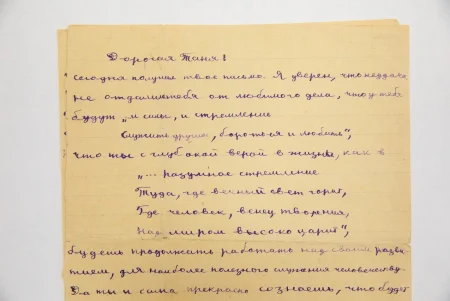 Дорогая Таня!
сегодня получил твое письмо. Я уверен, что неудача
не отдалит тебя от любимого дела, что у тебя
будут „и силы, и стремление
служить другим, бороться и любить",
что ты с глубокой верой в жизнь, как в
„... разумное стремление
Туда, где вечный свет горит,
Где человек, венец творения,
Над миром высоко царит",
будешь продолжать работать над своим разви-
тием, для наиболее полезного служения человечеству.
Да ты и сама прекрасно сознаешь, что будет